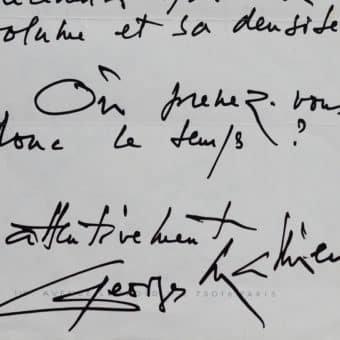 volume et sa densité
Où prenez-vous
donc le temps ?
attentivement
Georges Mathieu
75016 PARIS